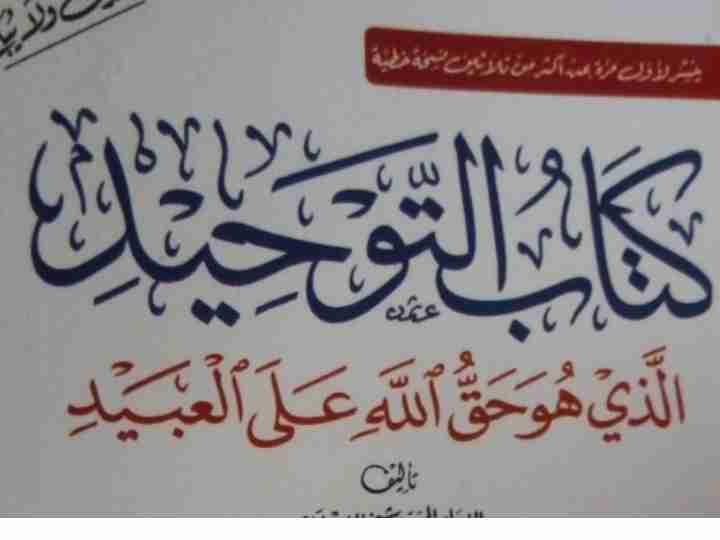 ينشر لأول مرة عن أكثر من ثلاثين نسخة خطية
كِتَابُ التَّوْحِيدِ
الَّذِي هُوَ حَقُّ ٱللَّهِ عَلَى ٱلْعَبِيدِ
تأليف